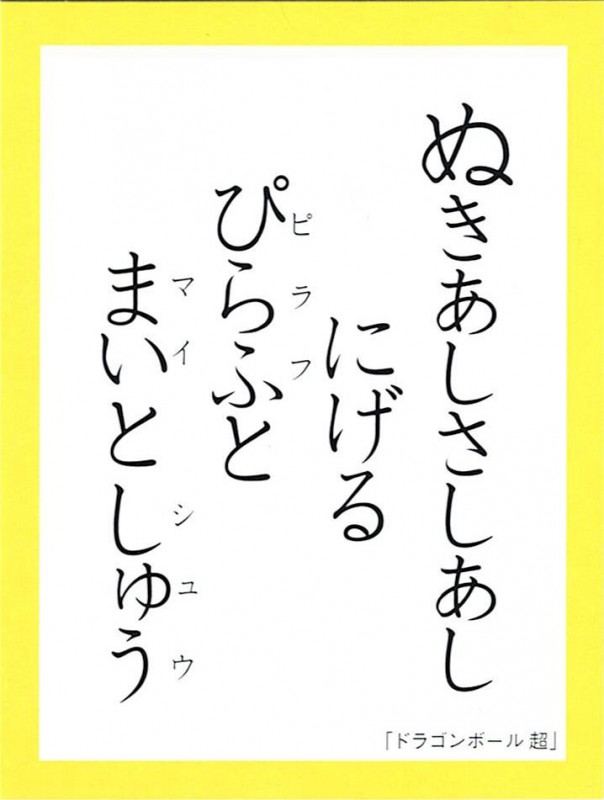 ぬきあしさしあし
にげる
ぴらふと
ピラフ
まいとしゅう
マイ
シユウ
「ドラゴンボール 超」